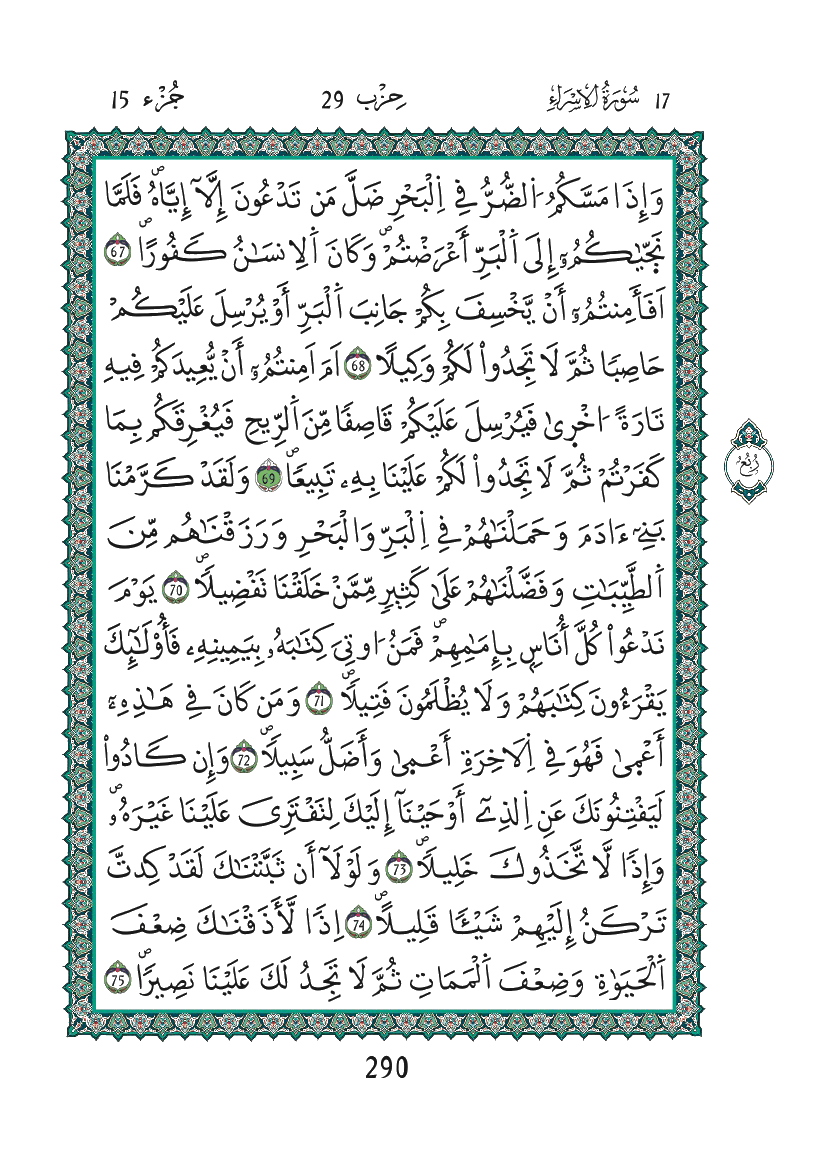 17 سُورَةُ الإِسْرَاءِ حِزْب 29 جُزْء 15
وَإِذَا مَسَّكُمُ اُ۬لضُّرُّ فِے اِ۬لْبَحْرِ ضَلَّ مَن تَدْعُونَ إِلَّآ إِيَّاهُۖ فَلَمَّا
نَجّ۪يٰكُمُۥٓ إِلَي اَ۬لْبَرِّ أَعْرَضْتُمْۖ وَكَانَ اَ۬لِانسَٰنُ كَفُورًاۖ 67
اَفَأَمِنتُمُۥٓ أَنْ يَّخْسِفَ بِكُمْ جَانِبَ اَ۬لْبَرِّ أَوْ يُرْسِلَ عَلَيْكُمْ
حَاصِبًا ثُمَّ لَا تَجِدُواْ لَكُمْ وَكِيلًا 68 اَمَ اَمِنتُمُۥٓ أَنْ يُّعِيدَكُمْ فِيهِ
تَارَةً ا۟خْر۪يٰ فَيُرْسِلَ عَلَيْكُمْ قَاصِفًا مِّنَ اَ۬لرِّيحِ فَيُغْرِقَكُم بِمَا
كَفَرْتُمْ ثُمَّ لَا تَجِدُواْ لَكُمْ عَلَيْنَا بِهِۦ تَبِيعًاۖ 69 وَلَقَدْ كَرَّمْنَا
بَنِےٓ ءَادَمَ وَحَمَلْنَٰهُمْ فِے اِ۬لْبَرِّ وَالْبَحْرِ وَرَزَقْنَٰهُم مِّنَ
اَ۬لطَّيِّبَٰتِ وَفَضَّلْنَٰهُمْ عَلَيٰ كَثِيرٖ مِّمَّنْ خَلَقْنَا تَفْضِيلًاۖ 70 يَوْمَ
نَدْعُواْ كُلَّ أُنَاسِۢ بِإِمَٰمِهِمْۖ فَمَنُ ا۟وتِيَ كِتَٰبَهُۥ بِيَمِينِهِۦ فَأُوْلَٰٓئِكَ
يَقْرَءُونَ كِتَٰبَهُمْ وَلَا يُظْلَمُونَ فَتِيلًاۖ 71 وَمَن كَانَ فِے هَٰذِهِۦٓ
أَعْم۪يٰ فَهُوَ فِے اِ۬لَاخِرَةِ أَعْم۪يٰ وَأَضَلُّ سَبِيلًاۖ 72 وَإِن كَادُواْ
لَيَفْتِنُونَكَ عَنِ اِ۬لذِےٓ أَوْحَيْنَآ إِلَيْكَ لِتَفْتَرِيَ عَلَيْنَا غَيْرَهُۥۖ
وَإِذًا لَّا تَّخَذُوكَ خَلِيلًاۖ 73 وَلَوْلَآ أَن ثَبَّتْنَٰكَ لَقَدْ كِدتَّ
تَرْكَنُ إِلَيْهِمْ شَيْـًٔا قَلِيلًاۖ 74 اِذًا لَّأَذَقْنَٰكَ ضِعْفَ
اَ۬لْحَيَوٰةِ وَضِعْفَ اَ۬لْمَمَاتِ ثُمَّ لَا تَجِدُ لَكَ عَلَيْنَا نَصِيرًاۖ 75
رُبُعُ
290